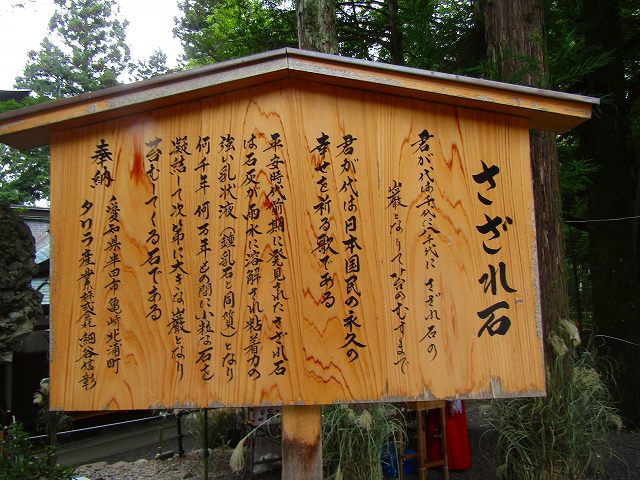 さざれ石
君が代は千代に八千代に さざれ石の
巌となりて苔のむすまで
君が代は日本国民の永久の
幸せを祈る歌である
平安時代前期に発見されたさざれ石
は石灰が雨水に溶解され粘着力の
強い乳状液(鍾乳石と同質)となり
何千年 何万年もの間に小粒な石を
凝結して次第に大きな巌となり
苔むしてくる石である
奉納 愛知県半田市亀崎北浦町
タワラ産業株式会社 細谷信彰